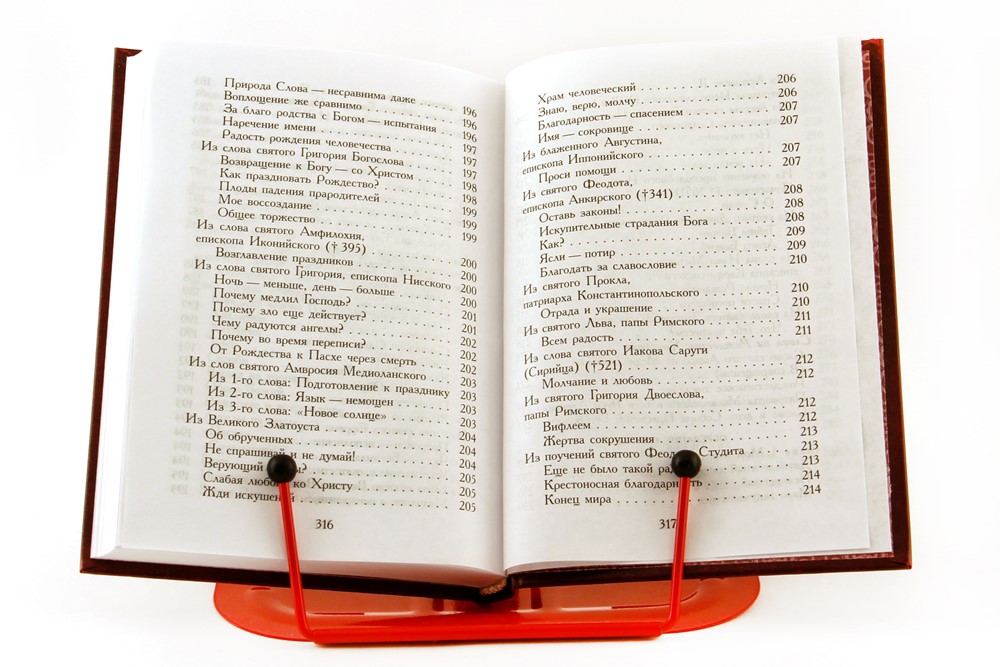 Природа Слова — несравнима даже . . . . . . . 196
Воплощение же сравнимо . . . . . . . . . . . . 196
За благо родства с Богом — испытания . . . . 196
Наречение имени . . . . . . . . . . . . . . . . 197
Радость рождения человечества . . . . . . . . . 197
Из слова святого Григория Богослова . . . . . . 197
Возвращение к Богу — со Христом . . . . . . . 198
Как праздновать Рождество? . . . . . . . . . . 198
Плоды падения прародителей . . . . . . . . . . 199
Мое воссоздание . . . . . . . . . . . . . . . . 199
Общее торжество . . . . . . . . . . . . . . . . 199
Из слова святого Амфилохия,
епископа Иконийского († 395) . . . . . . . . . 200
Возглавление праздников . . . . . . . . . . . . 200
Из слова святого Григория, епископа Нисского 200
Ночь — меньше, день — больше . . . . . . . . 201
Почему медлил Господь? . . . . . . . . . . . . 201
Почему зло еще действует? . . . . . . . . . . . 202
Чему радуются ангелы? . . . . . . . . . . . . . 202
Почему во время переписи? . . . . . . . . . . . 202
От Рождества к Пасхе через смерть . . . . . . 203
Из слов святого Амвросия Медиоланского . . . . 203
Из 1-го слова: Подготовление к празднику 203
Из 2-го слова: Язык — немощен . . . . . . . . 203
Из 3-го слова: «Новое солнце» . . . . . . . . . 204
Из Великого Златоуста . . . . . . . . . . . . . 204
Об обрученных . . . . . . . . . . . . . . . . . 204
Не спрашивай и не думай! . . . . . . . . . . . 205
Верующий . . . . . . . . . . . . . . . . . . . 205
Слабая ко Христу . . . . . . . . . . . . . . . 205
Жди искушений
316
Храм человеческий . . . . . . . . . . . . . . . 206
Знаю, верю, молчу . . . . . . . . . . . . . . . 206
Благодарность — спасением . . . . . . . . . . . 207
Имя — сокровище . . . . . . . . . . . . . . . . 207
Из блаженного Августина,
епископа Иппонийского . . . . . . . . . . . . . 207
Проси помощи . . . . . . . . . . . . . . . . . 207
Из святого Феодота,
епископа Анкирского (†341) . . . . . . . . . . 208
Оставь законы! . . . . . . . . . . . . . . . . 208
Искупительные страдания Бога . . . . . . . . . 208
Как? . . . . . . . . . . . . . . . . . . . . . 209
Ясли — потир . . . . . . . . . . . . . . . . . 209
Благодать за славословие . . . . . . . . . . . . 210
Из святого Прокла,
патриарха Константинопольского . . . . . . . . 210
Отрада и украшение . . . . . . . . . . . . . . 210
Из святого Льва, папы Римского . . . . . . . . 211
Всем радость . . . . . . . . . . . . . . . . . 211
Из слова святого Иакова Саруги
(Сирийца) (†521) . . . . . . . . . . . . . . . 212
Молчание и любовь . . . . . . . . . . . . . . . 212
Из святого Григория Двоеслова,
папы Римского . . . . . . . . . . . . . . . . . 212
Вифлеем . . . . . . . . . . . . . . . . . . . . 212
Жертва сокрушения . . . . . . . . . . . . . . . 213
Из поучений святого Феодора Студита . . . . . 213
Еще не было такой . . . . . . . . . . . . . . . 213
Крестоносная благодарность . . . . . . . . . . 214
Конец мира . . . . . . . . . . . . . . . . . . 214
317